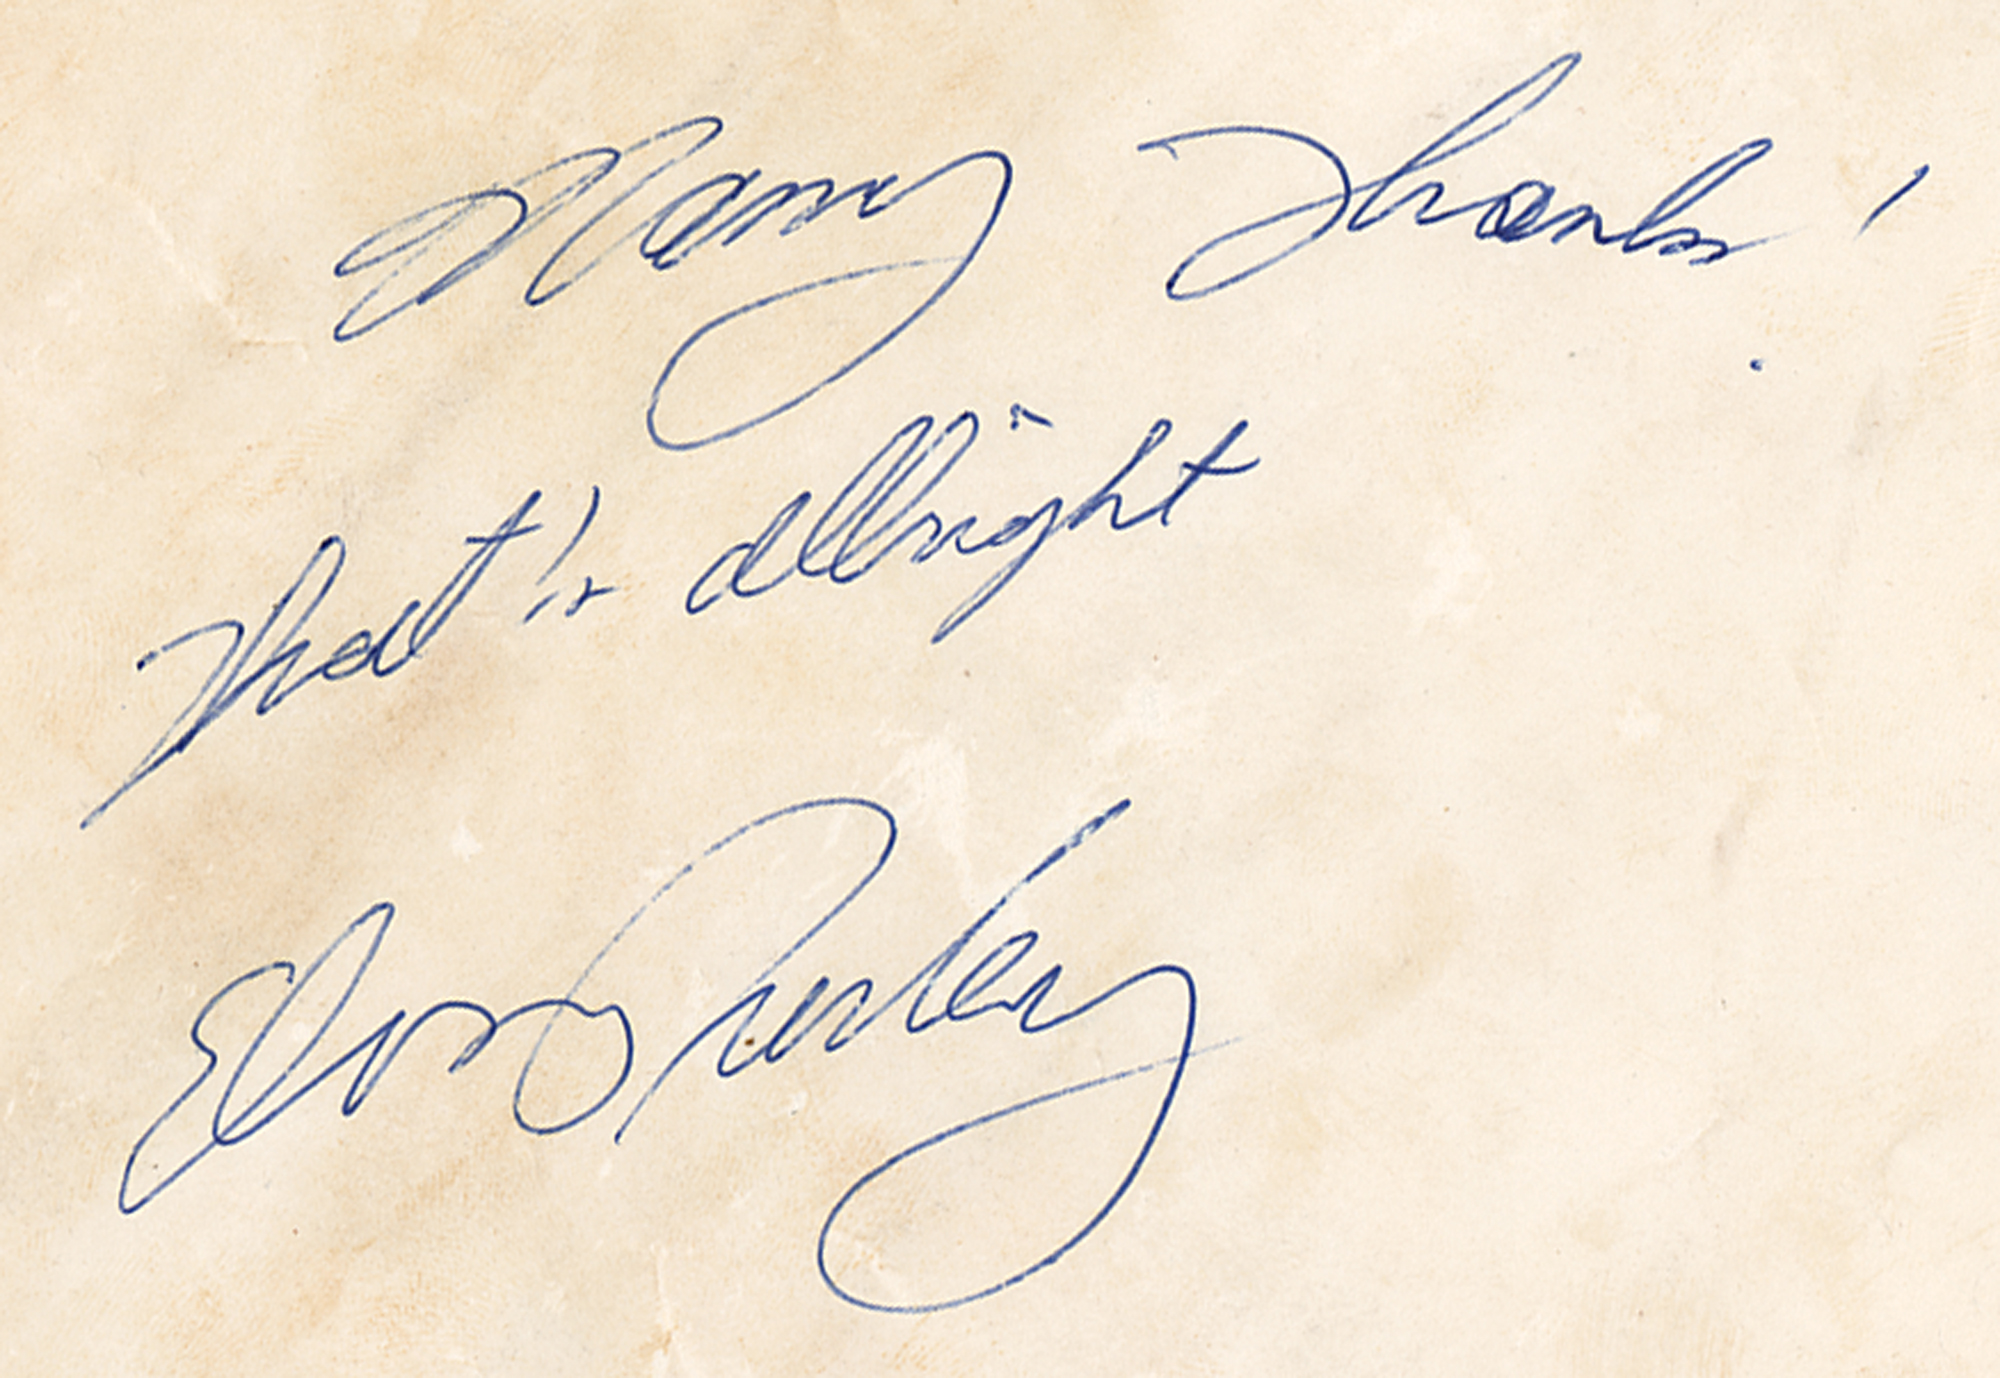 Many Thanks!
That's allright
Elvis Presley